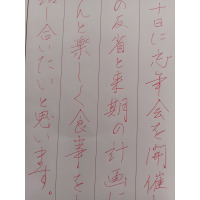 十日に忘年会を開催し
の反省と来期の計画に
んと楽しく食事をし
合いたいと思います。